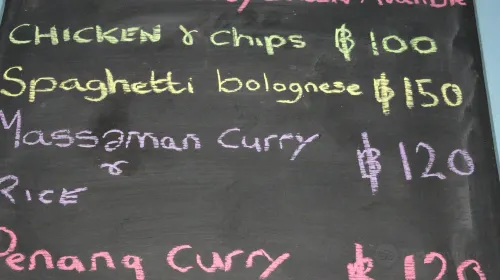 CHICKEN & Chips ฿ 100
Spaghetti bolognese ฿ 150
Massaman Curry ฿ 120
&
RICE
Penang Curry ฿ 120